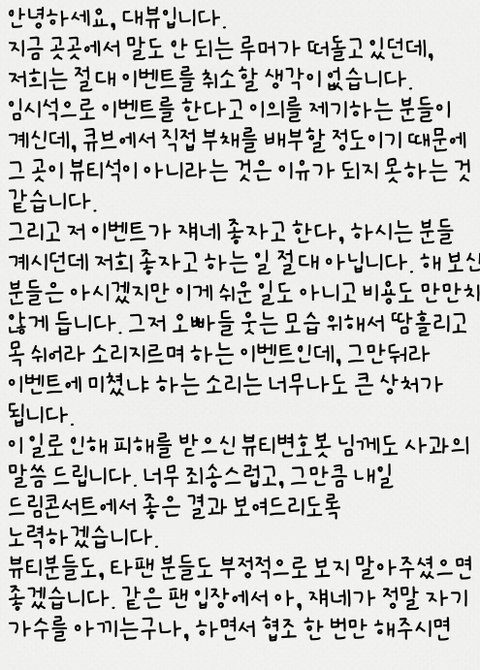 안녕하세요, 대뷰입니다.
지금 곳곳에서 말도 안 되는 루머가 떠돌고 있던데,
저희는 절대 이벤트를 취소할 생각이 없습니다.
임시석으로 이벤트를 한다고 이의를 제기하는 분들이
계신데, 큐브에서 직접 부채를 배부할 정도이기 때문에
그 곳이 뷰티석이 아니라는 것은 이유가 되지 못하는 것
같습니다.
그리고 저 이벤트가 쟤네 좋자고 한다, 하시는 분들
계시던데 저희 좋자고 하는 일 절대 아닙니다. 해 보신
분들은 아시겠지만 이게 쉬운 일도 아니고 비용도 만만치
않게 듭니다. 그저 오빠들 웃는 모습 위해서 땀흘리고
목 쉬어라 소리지르며 하는 이벤트인데, 그만둬라
이벤트에 미쳤냐 하는 소리는 너무나도 큰 상처가
됩니다.
이 일로 인해 피해를 받으신 뷰티변호봇 님께도 사과의
말씀 드립니다. 너무 죄송스럽고, 그만큼 내일
드림콘서트에서 좋은 결과 보여드리도록
노력하겠습니다.
뷰티분들도, 타팬 분들도 부정적으로 보지 말아주셨으면
좋겠습니다. 같은 팬 입장에서 아, 쟤네가 정말 자기
가수를 아끼는구나, 하면서 협조 한 번만 해주시면